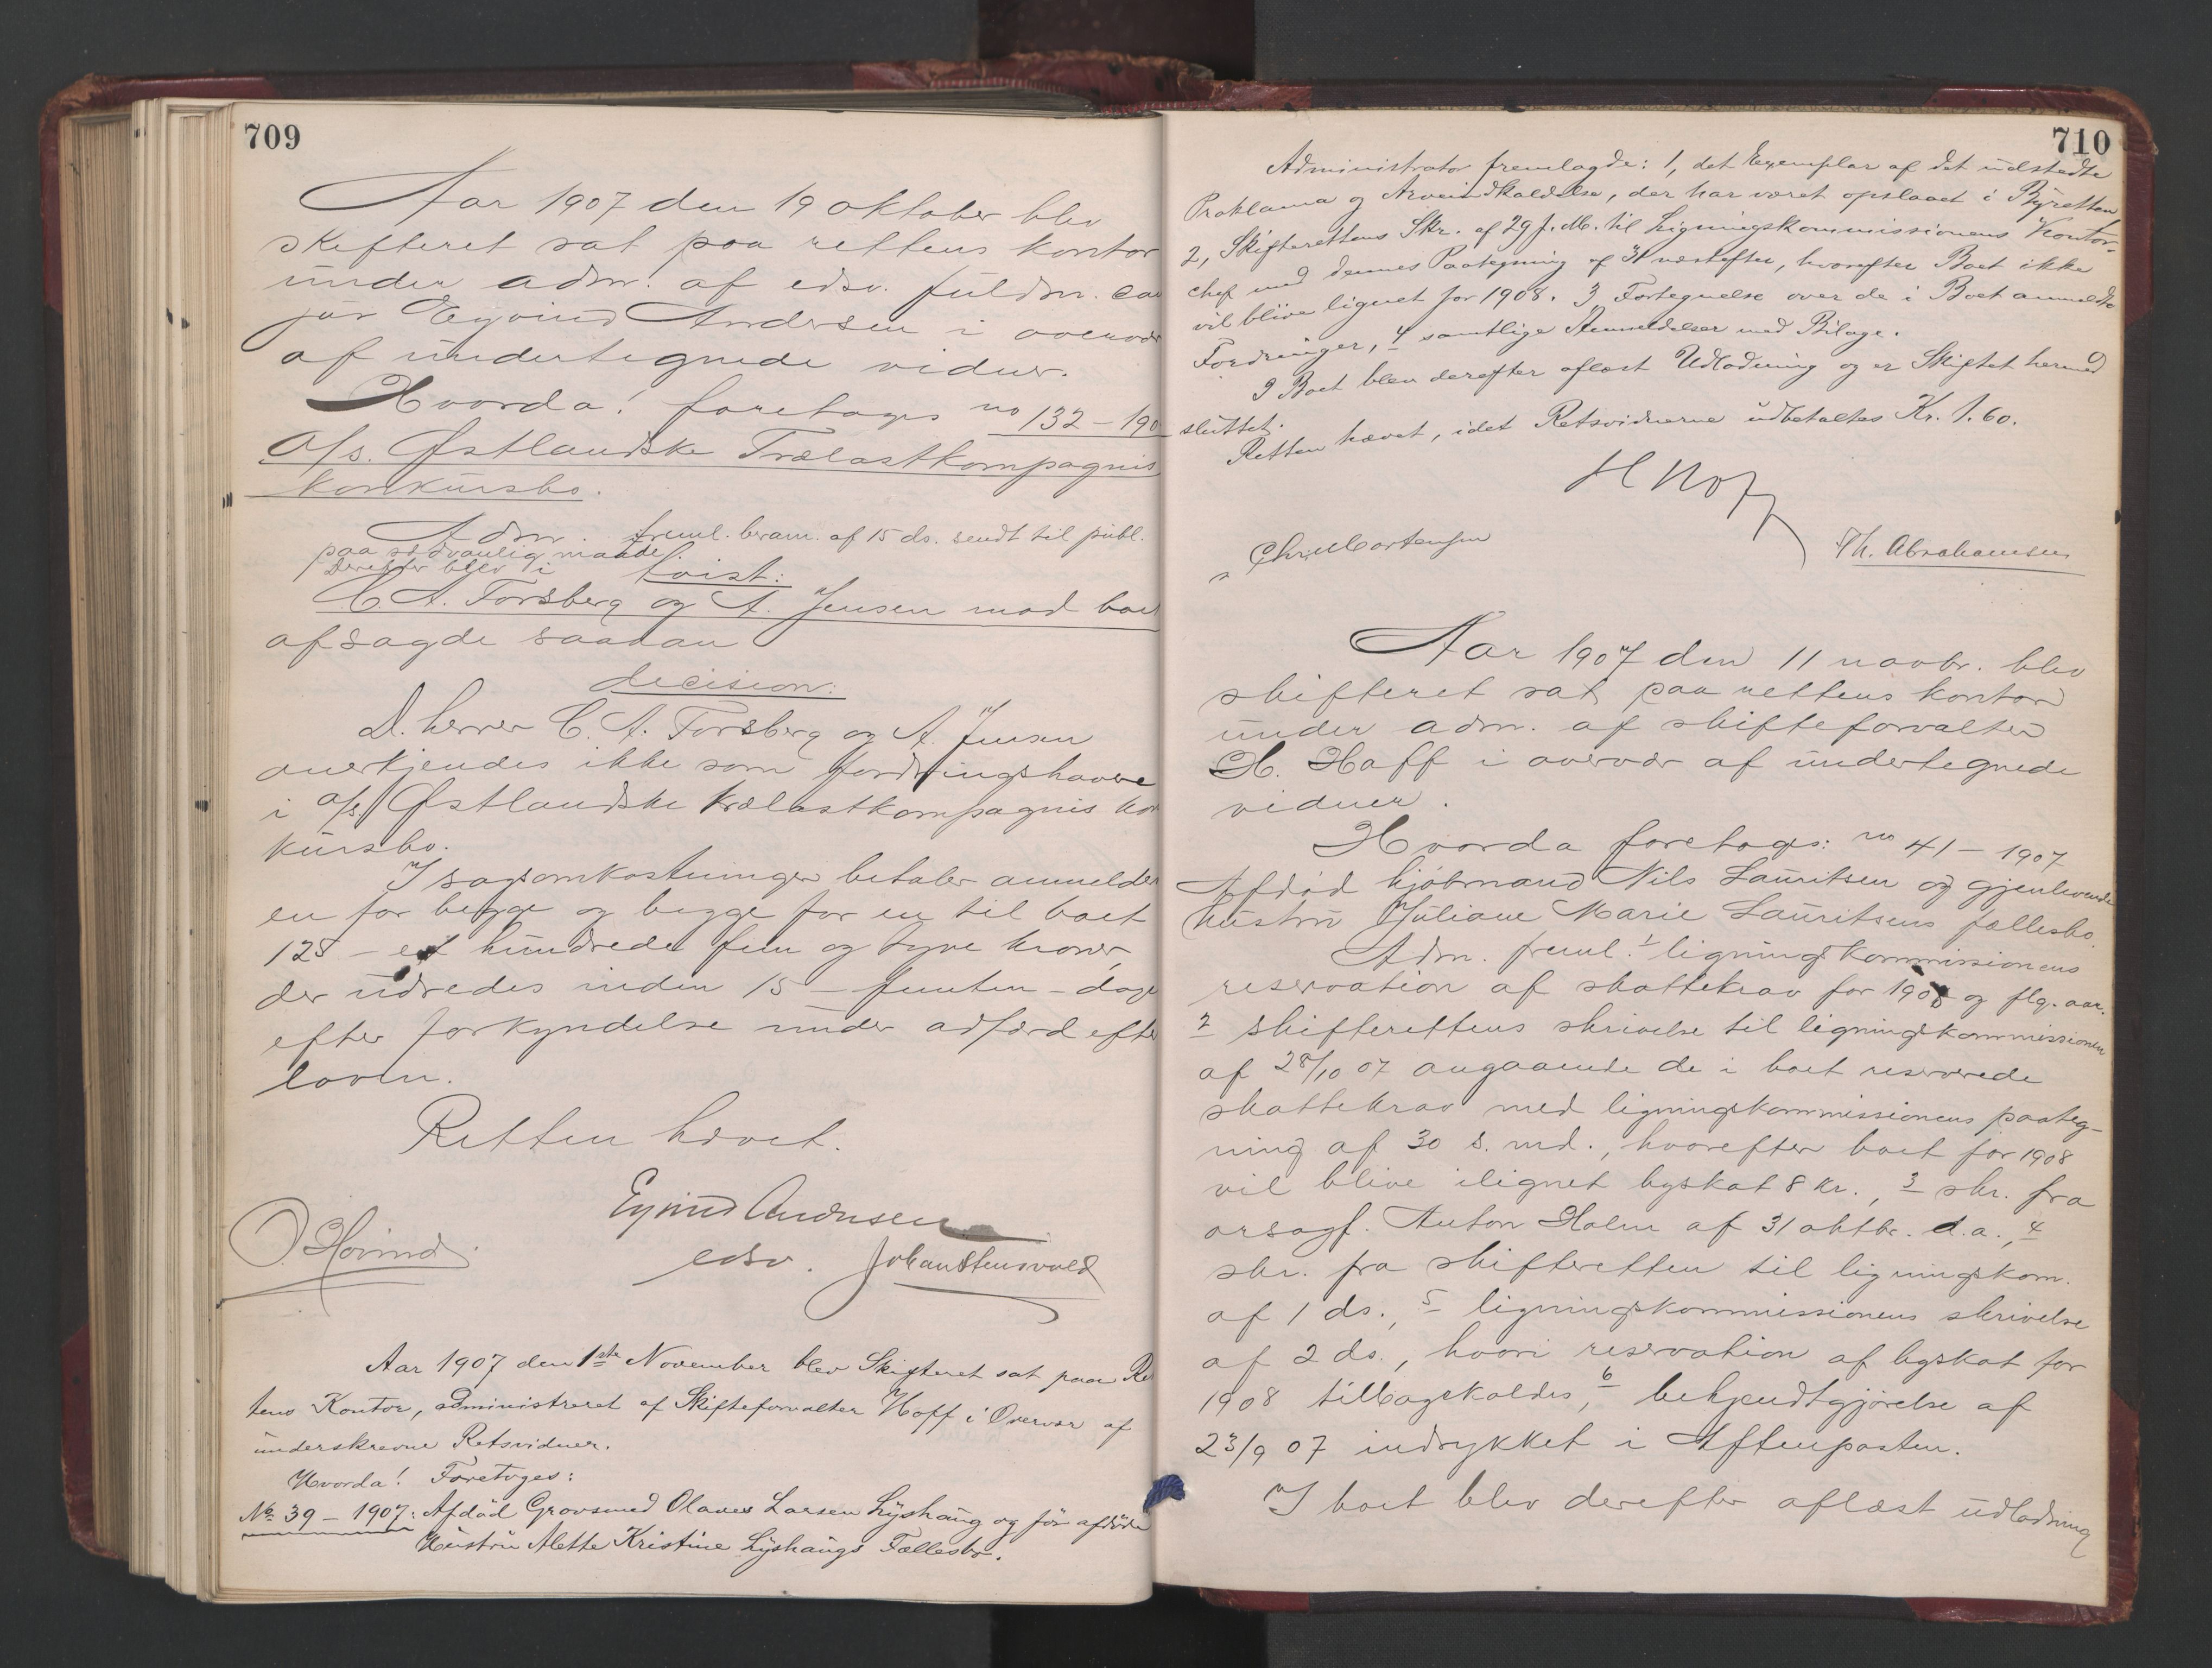 709
Aar 1907 den 19 oktober blev
skifteret sat paa rettens kontor
under adm. af edsv. fuldm. can
jur Eyvind Andersen i overvær
af undertegnede vidner.
Hvorda! foretoges no 132 – 190
A/s. Østlandske Trælastkompagnis
konkursbo.
Adm. freml. beram. af 15 ds. sendt til publ.
paa sedvanlig maade.
Derefter blev i tvist:
C. A. Forsberg og A. Jensen mod boet
afsagde saadan
decision:
D. herrer C. A. Forsberg og A. Jensen
anerkjendes ikke som fordringshavere
i a/s. Østlandske trælastkompagnis kon
kursbo.
I sagsomkostninger betaler anmelder
en for begge og begge for en til boet
125 – et hundrede fem og tyve kroner,
der udredes inden 15 – femten – dage
efter forkyndelse under adfærd efter
loven.
Retten hævet.
Eyvind Andersen
O. Hovind
edsv. Johan Stensvold
Aar 1907 den 1ste November blev Skifteret sat paa Ret
tens Kontor, administreret af Skifteforvalter Hoff i Overvær af
underskrevne Retsvidner.
Hvorda! Foretoges:
No 39 – 1907: Afdöd Grovsmed Olaves Larsen Lyshaug og för afdöde
Hustru Alette Kristine Lyshaugs Fællesbo.
710
Administrator fremlagde: 1, det Exemplar af det udstedte
Proklama og Arveindkaldelse, der har været opslaaet i Byretten,
2, Skifterettens Skr. af 29 f. M. til Ligningskommissionens Kontor-
chef med dennes Paategning af 31 næstefter, hvorefter Boet ikke
vil blive lignet for 1908. 3 Fortegnelse over de i Boet anmeldte
Fordringer, 4 samtlige Anmeldelser med Bilage.
I Boet blev derefter aflæst Udlodning og er Skiftet hermed
sluttet.
Retten hævet, idet Retsvidnerne udbetaltes Kr. 1.60.
H Hoff
Chr. Mortensen
Th. Abrahamsen
Aar 1907 den 11 novbr. blev
skifteret sat paa rettens kontor
under adm. af skifteforvalter
H. Hoff i overvær af undertegnede
vidner.
Hvorda foretoges: no 41 – 1907
Afdöd kjöbmand Nils Lauritsen og gjenlevende
hustru Juliane Marie Lauritsens fællesbo.
Adm. freml. 1 ligningskommissionens
reservation af skattekrav for 1908 og flg. aar.
2 skifterettens skrivelse til ligningskommissionen
af 28/10 07 angaaende de i boet reserverede
skattekrav med ligningskommissionens paateg-
ning af 30 s. md., hvorefter boet for 1908
vil blive ilignet byskat 8 kr., 3 skr. fra
orsagf. Anton Holm af 31 oktbr. d.a., 4
skr. fra skifteretten til ligningskom.
af 1 ds., 5 ligningskommissionens skrivelse
af 2 ds., hvori reservation af byskat for
1908 tilbagekaldes, 6 bekjendtgjörelse af
23/9 07 indrykket i Aftenposten.
I boet blev derefter aflæst udlodning